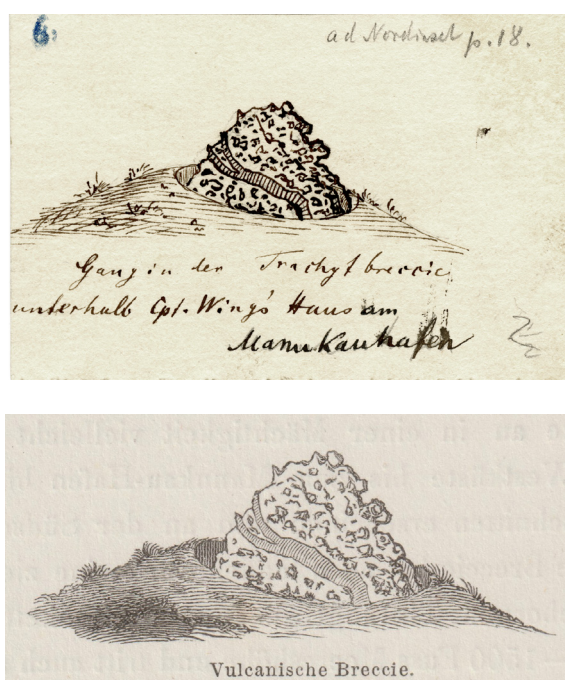 6.
ad Nordinsel p. 18.
Gang in der Trachytbreccie
unterhalb Cpt. Wing's Haus am
Manukauhafen
Vulcanische Breccie.